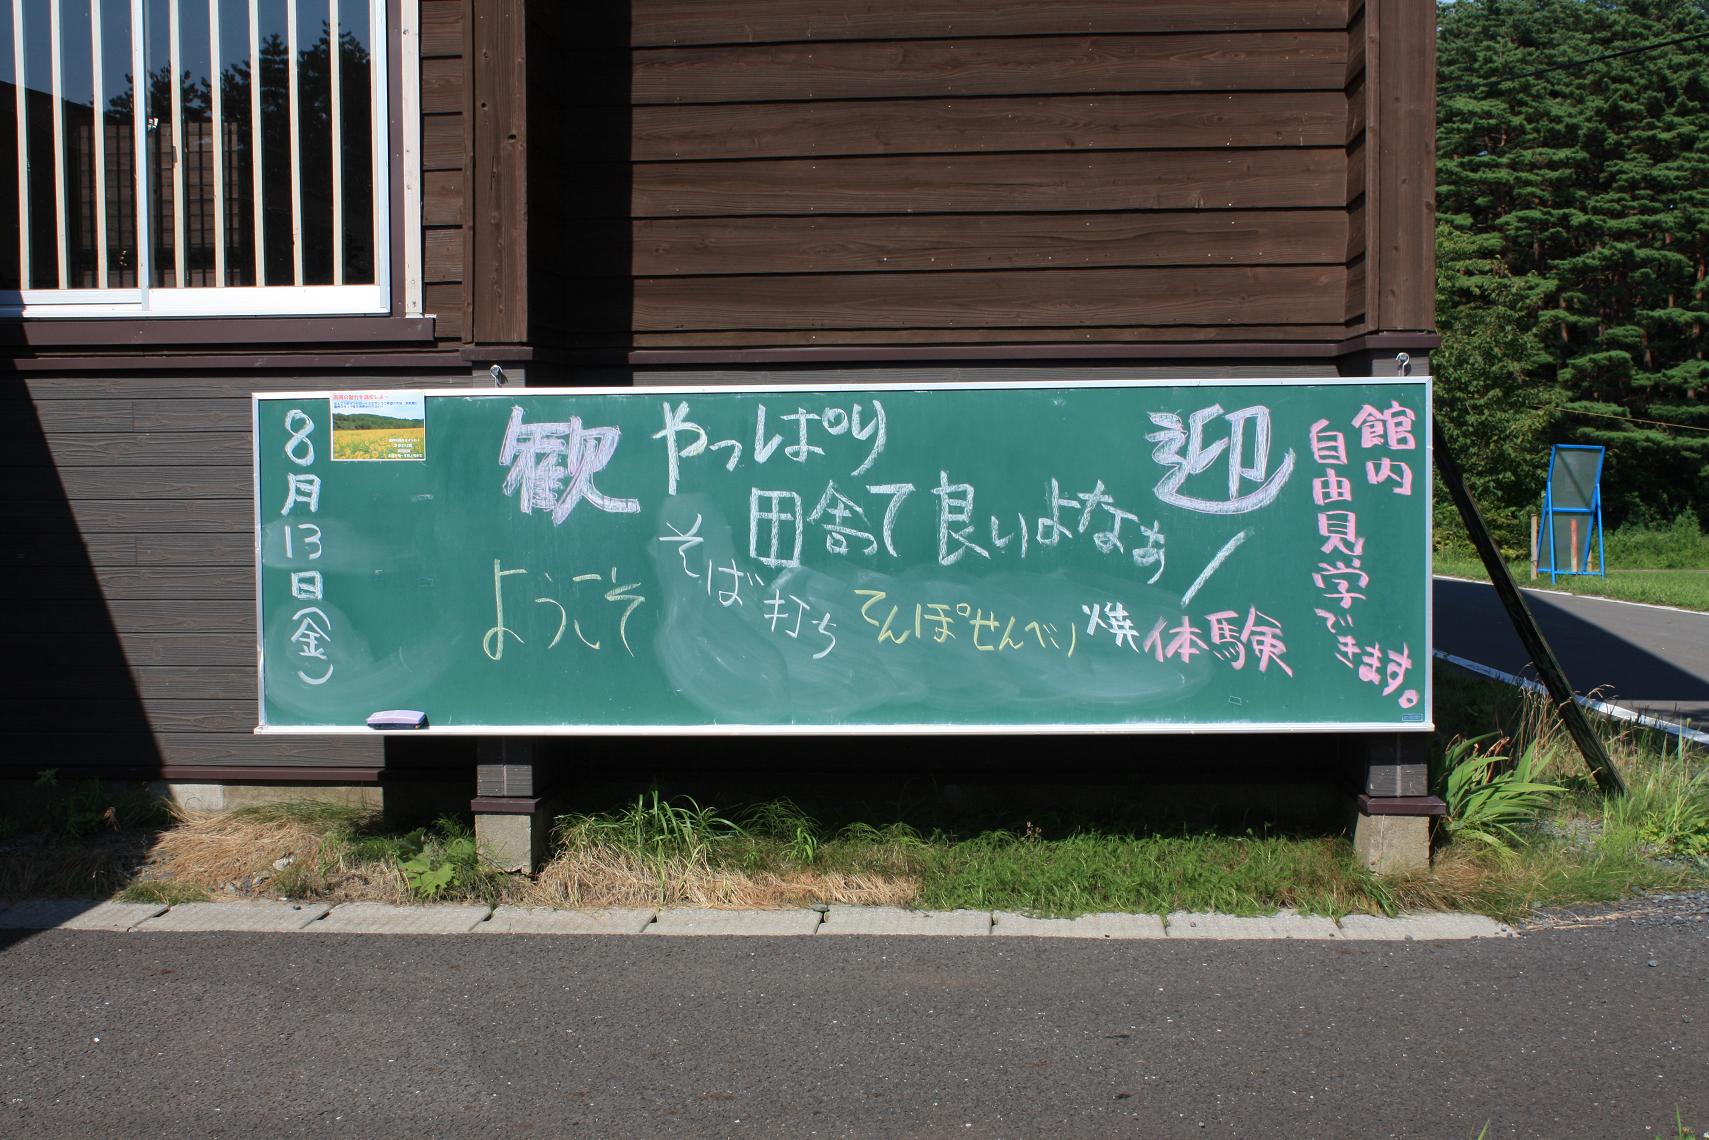 8月13日(金)
歓迎
やっぱり
田舎って良いよなぁ
ようこそ
そば打ち
てんぽせんべい焼体験
館内
自由見学できます。